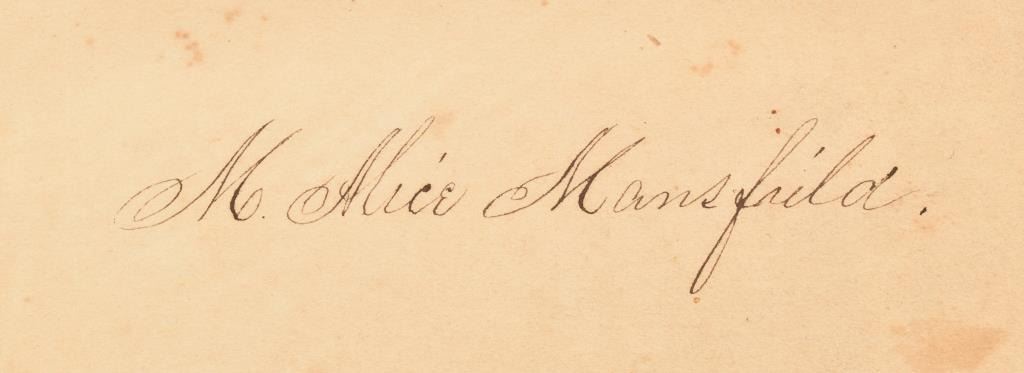 M. Alice Mansfield.